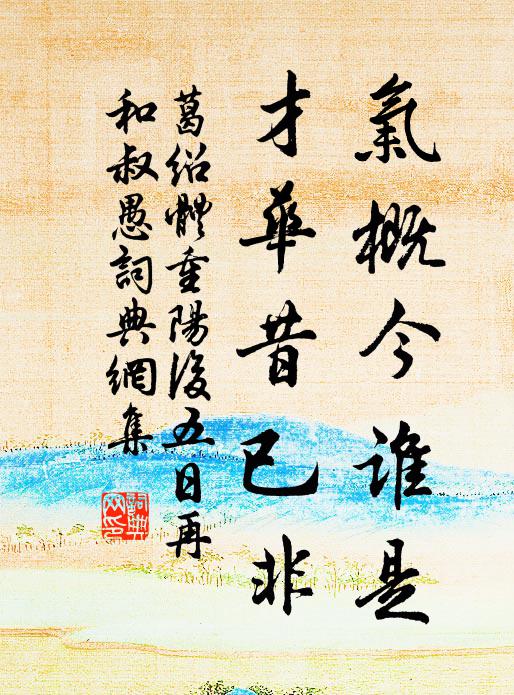 氣概今誰是
才華昔已非
葛紹體重陽後五日再
和叔愚詞典網集
詞典
网印